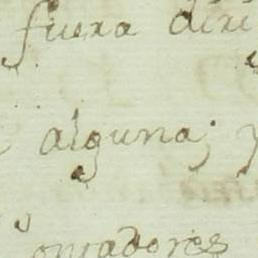 fuera diri
alguna; y
omadores